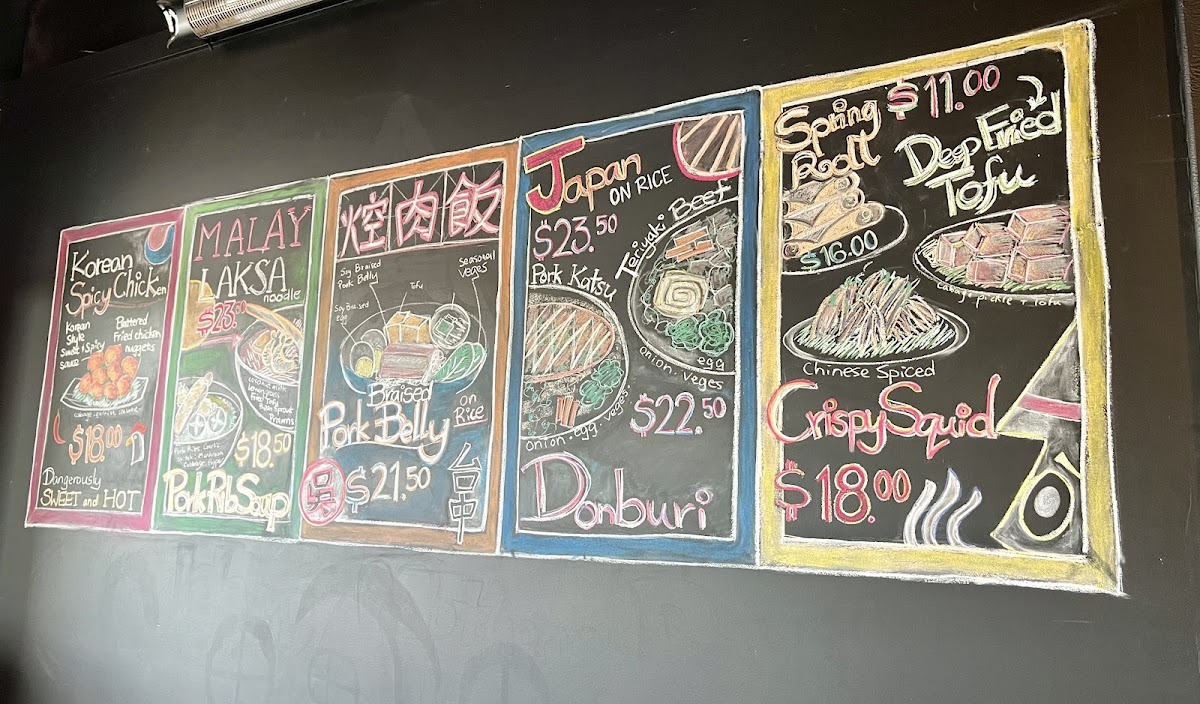 Korean
Spicy Chicken
Korean
Style
Sweet & Spicy
sauce
Battered
Fried chicken
nuggets
$18.00
Dangerously
SWEET and HOT
MALAY
LAKSA
noodle
$23.00
coconut milk
Lemongrass
Fried Tofu
Bean Sprout
Prawns
$18.50
Pork Rib Soup
焢肉飯
Soy Braised
Pork Belly
Tofu
Seasonal
veges
Soy Braised
egg
Braised
Pork Belly
on
Rice
吳
$21.50
台中
Japan
ON RICE
$23.50
Pork Katsu
Teriyaki Beef
egg
onion. veges
onion. egg. veges.
$22.50
Donburi
Spring
Roll
$11.00
Deep Fried
Tofu
$16.00
Chinese Spiced
Crispy Squid
$18.00